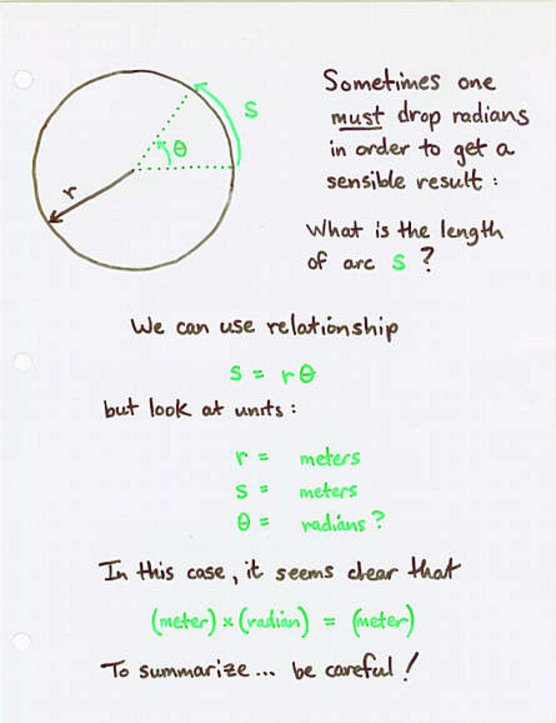 Sometimes one
must drop radians
in order to get a
sensible result :
What is the length
of arc s ?
s
θ
r
We can use relationship
s = r θ
but look at units :
r = meters
s = meters
θ = radians ?
In this case, it seems clear that
(meter) x (radian) = (meter)
To summarize... be careful !